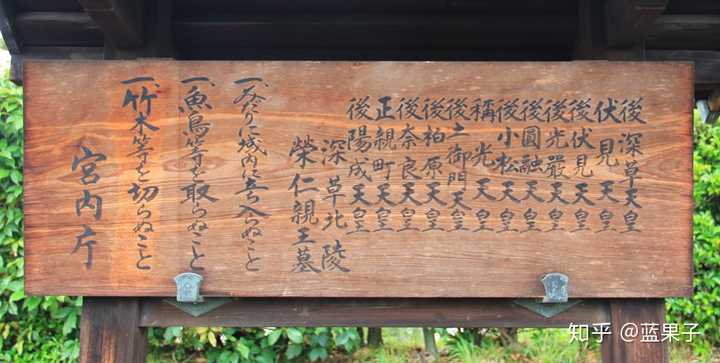 後深草天皇
伏見天皇
後伏見天皇
後光嚴天皇
後圓融天皇
後小松天皇
稱光天皇
後土御門天皇
後柏原天皇
後奈良天皇
正親町天皇
後陽成天皇
深草北陵
榮仁親王墓
一、みだりに域内に立ち入らぬこと
一、魚鳥等を取らぬこと
一、竹木等を切らぬこと
宮内庁
知乎 @蓝果子